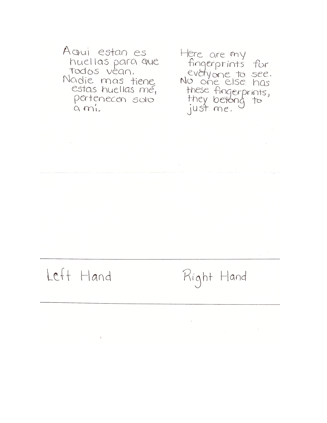 Aqui estan es
huellas para que
Todos vean.
Nadie mas tiene
estas huellas me,
pertenecen solo
a mi.
Here are my
fingerprints for
everyone to see.
No one else has
these fingerprints,
they belong to
just me.
Left Hand
Right Hand